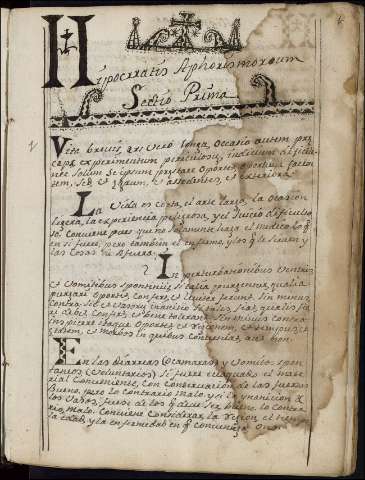 Hipocratis Aphorismoroum
Sectio Prima
Vita brevis, ars vero longa, ocasio autem pre
ceps, experimentum periculosum, iudicium dificile
nec solum se ipsum prestare oportet oportuna facien
tem, sed et egrum, et assidentes, et exteriora
La Vida es corta, el arte larga, la ocasion
ligera, la experiencia peligrosa, y el Juicio dificulto
so. Conviene pues que no solamente haga el medico lo q
en si fuere, pero tambien el enfermo, y los q le sirven y
las cosas de afuera.
2 In perturbationibus ventris
et vomitibus sponteniis si talia purgentur, qualia
purgari oportet, confert, et leviter ferunt. Sin minus
contra. Sic et vasorum
si debet confert, et bene tolerant. Sin minus contra.
Inspicere itaque oportet et regionem, et tempus, et
etatem, et morbos in quibus conveniat, aut non.
En las diarreas Camaras, y Vomitos spon
taneos (Voluntarios) si fuere evaquado el mate
rial Conveniente, con Conservacion de las fuerzas
Bueno, pero lo Contrario Malo, y si la ynanicion de
los Vasos, fuese de los q deve ser, bien, lo Contra
rio, malo. Conviene Considerar, la region, el tiempo
la edad, y la enfermedad en q Convienga, O no.